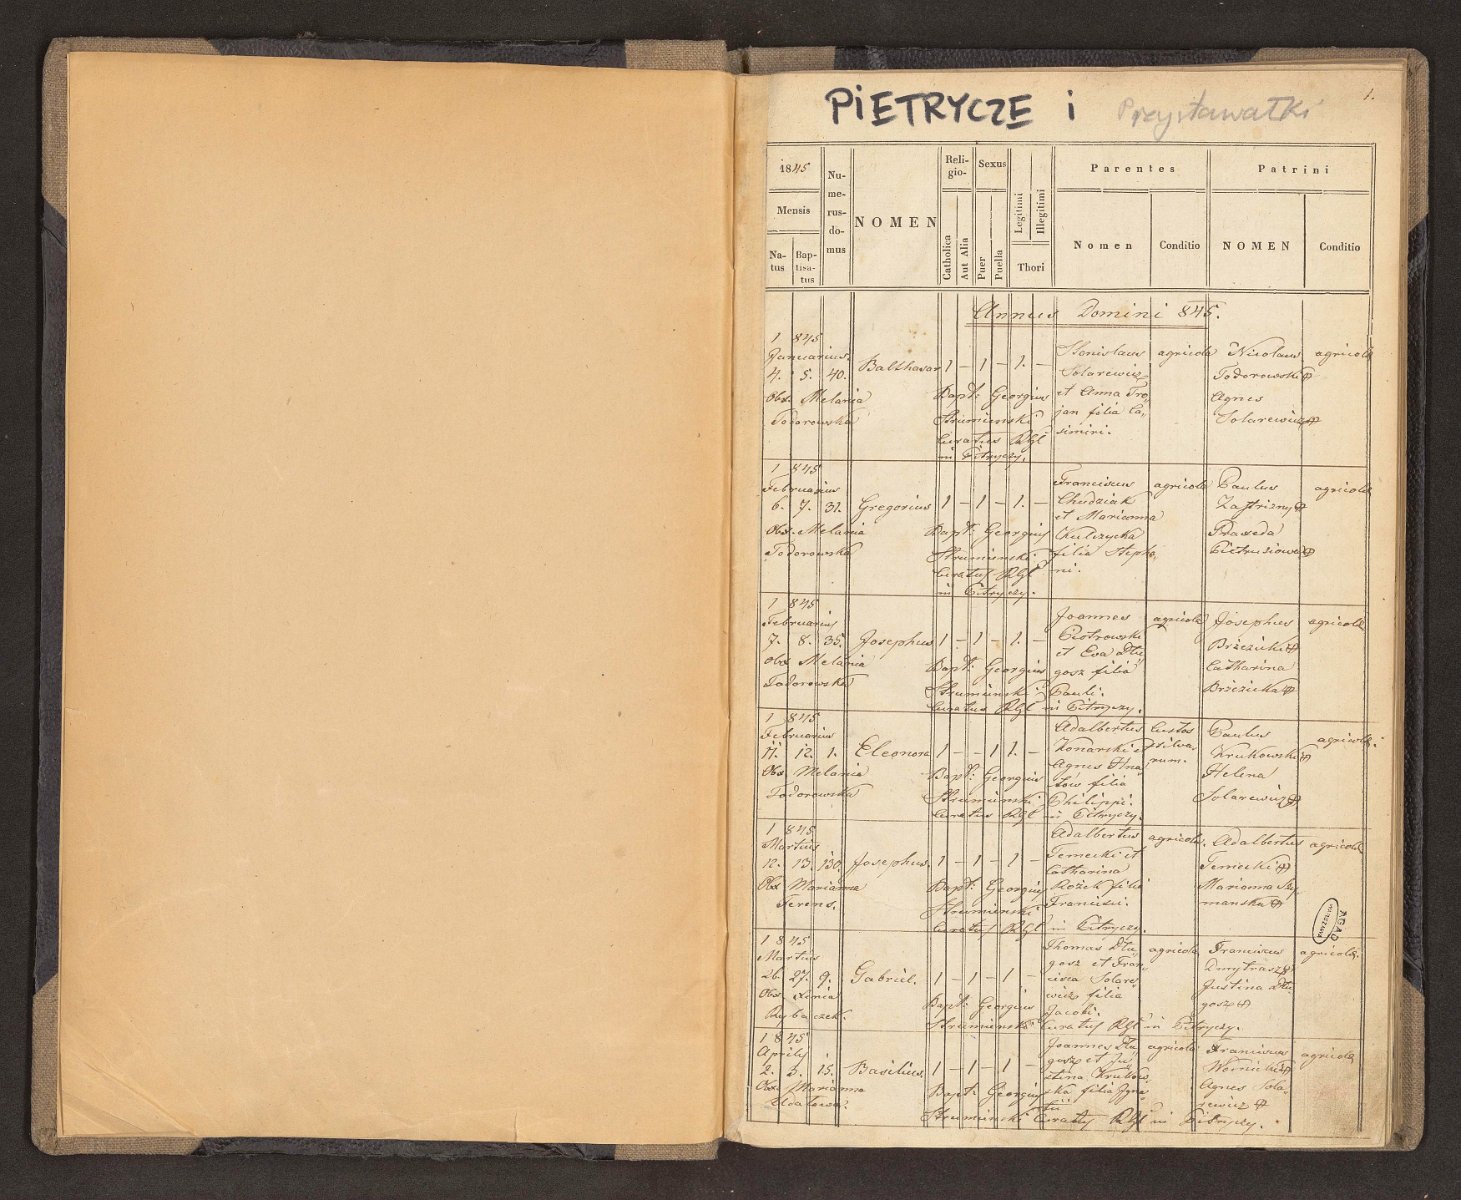 PIETRYCZE i Przystawałki
1.
1845
Mensis
Na- tus
Bap- tisa- tus
Nu- me- rus- do- mus
NOMEN
Reli- gio-
Catholica
Aut Alia
Sexus
Puer
Puella
Legitimi
Illegitimi
Thori
Parentes
Nomen
Conditio
Patrini
NOMEN
Conditio
Annus Domini 845.
1 845
Januarius
4. 5. 40. Balthasar 1 – 1 – 1. –
Obs. Melania
Todorowska
Bapt: Georgius
Strumienski
Curatus RGl
in Pitryczy.
Stanislaus
Solarewicz
et Anna Tro„
jan filia Ca„
simiri.
agricola
Nicolaus
Todorowski
Agnes
Solarewicz
agricola
1 845
Februarius
6. 7. 31. Gregorius 1 – 1 – 1. –
Obs. Melania
Todorowska
Bapt: Georgius
Strumienski
Curatus RGl
in Pitryczy.
Franciscus
Chudziak
et Marianna
Kulczycka
filia Stepha„
ni.
agricola
Paulus
Praxeda
agricola
1 845
Februarius
7. 8. 35. Josephus 1 – 1 – 1. –
Obs. Melania
Todorowska
Bapt: Georgius
Strumienski
Curatus RGl in Pitryczy.
Joannes
Piotrowski
et Eva Dłu„
gosz filia
Pauli.
agricola
Josephus
Brzezicki
Catharina
Brzezicka
agricola
1 845
Februarius
11. 12. 1. Eleonora 1 – – 1 1. –
Obs. Melania
Todorowska
Bapt: Georgius
Strumienski
Curatus RGl in Pitryczy.
Adalbertus
Konarski et
Agnes Hna„
tów filia
Philippi.
Custos
silva„
rum.
Paulus
Krukowski
Helena
Solarewicz
agricola
1 845
Martius
12. 13. 130. Josephus. 1 – 1 – 1 –
Obs. Marianna
Ferens.
Bapt: Georgius
Strumienski
Curatus RGl in Pitryczy.
Adalbertus
Ternecki et
Catharina
Rożek filia
Francisci.
agricola.
Adalbertus
Ternecki
Marianna Szy„
manska
agricola
AGAD
WARSZAWA
1 845
Martius
26. 27. 9. Gabriel. 1 – 1 – 1 –
Obs. Xenia
Rybaczek.
Bapt: Georgius
Strumienski Curatus RGl in Pitryczy.
Thomas Dłu„
gosz et Fran„
cisca Solare„
wicz filia
Jacobi.
agricola
Franciscus
Dmytrasz
Justina Dłu„
gosz
agricola.
1 845
Aprilis
2. 3. 15. Basilius. 1 – 1 – 1 –
Obs. Marianna
Bapt: Georgius
Strumienski Curatus RGl in Pitryczy.
Joannes Dłu„
gosz et Ju„
stina Krukow„
ska filia Igna„
tii
agricola
Franciscus
Wornicki
Agnes Sola„
rewicz
agricola